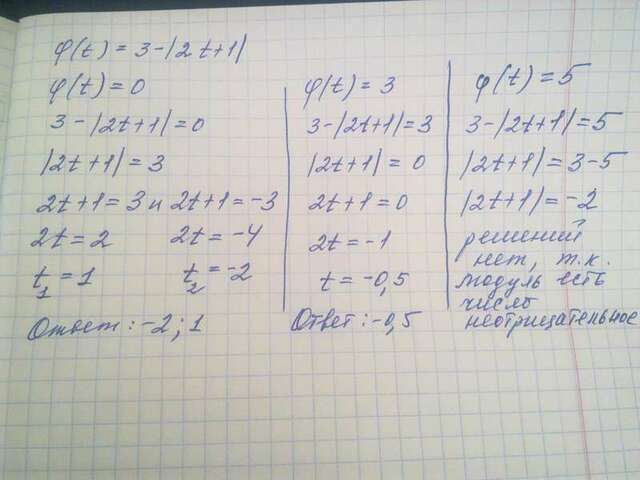 φ(t) = 3-|2t+1|
φ(t) = 0
3-|2t+1|=0
|2t+1| = 3
2t+1=3 и 2t+1=-3
2t=2 2t=-4
t₁=1 t₂=-2
Ответ: -2; 1
φ(t) = 3
3-|2t+1|=3
|2t+1| = 0
2t+1=0
2t=-1
t=-0,5
Ответ: -0,5
φ(t)=5
3-|2t+1|=5
|2t+1|=3-5
|2t+1|=-2
решений
нет, т.к.
модуль есть
число
неотрицательное